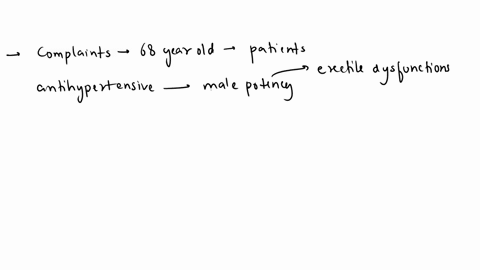 → Complaints → 68 year old → patients
antihypertensive → male potency → erectile dysfunctions